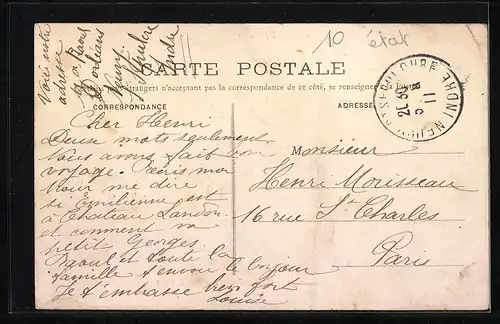 Voici notre
adresse
Indre
10
état
CARTE POSTALE
étrangers n'acceptent pas la correspondance de ce côté, se renseigner
CORRESPONDANCE
ADRESSE
INDRE
20
11
Cher Henri
Deux mots seulement
Nous avons fait bon
voyage. Écris moi
pour me dire
si Emilienne est
à Château Landon
et comment va
petit Georges
Raoul et toute la
famille t'envoie le bonjour
Je t'embrasse bien fort
Louise
Monsieur
Henri Mousseau
16 rue St Charles
Paris